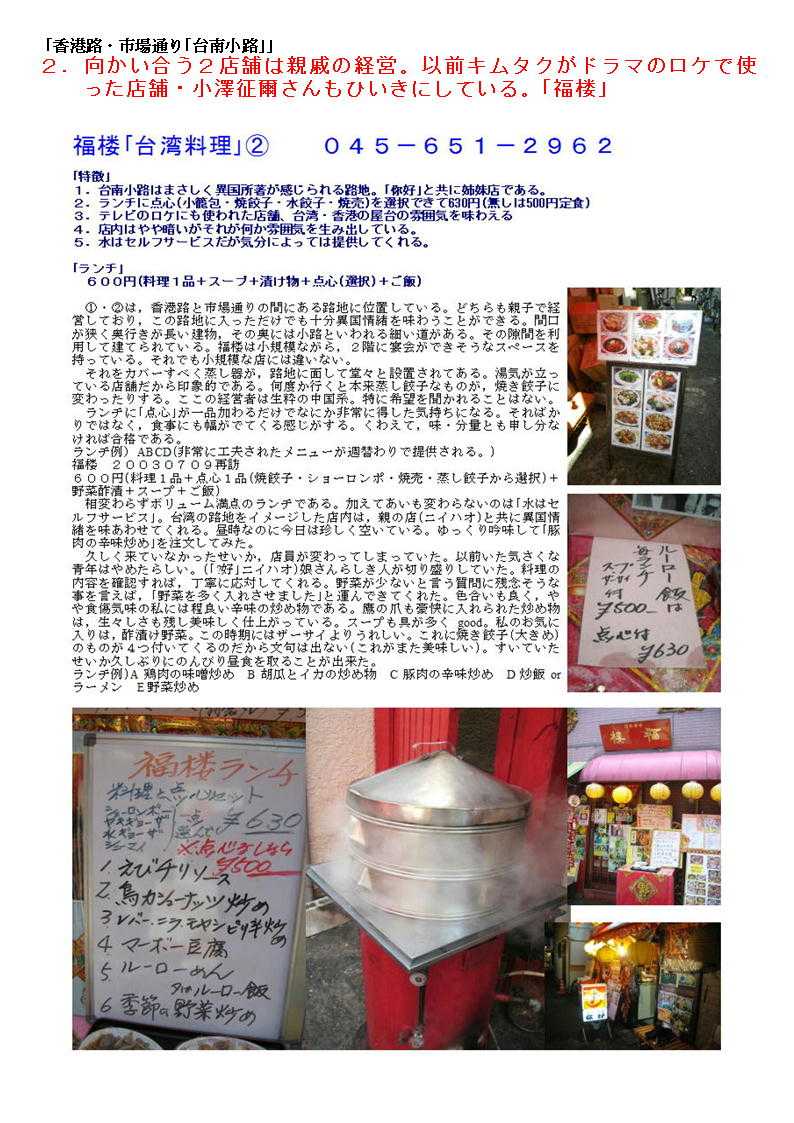 「香港路・市場通り「台南小路」」
２．向かい合う２店舗は親戚の経営。以前キムタクがドラマのロケで使
った店舗・小澤征爾さんもひいきにしている。「福楼」
福楼「台湾料理」② ０４５－６５１－２９６２
「特徴」
１．台南小路はまさしく異国所著が感じられる路地。「你好」と共に姉妹店である。
２．ランチに点心(小籠包・焼餃子・水餃子・焼売)を選択できて630円(無しは500円定食)
３．テレビのロケにも使われた店舗、台湾・香港の屋台の雰囲気を味わえる
４．店内はやや暗いがそれが何か雰囲気を生み出している。
５．水はセルフサービスだが気分によっては提供してくれる。
「ランチ」
６００円(料理１品＋スープ＋漬け物＋点心(選択)＋ご飯)
①・②は，香港路と市場通りの間にある路地に位置している。どちらも親子で経
営しており，この路地に入っただけでも十分異国情緒を味わうことができる。間口
が狭く奥行きが長い建物，その奥には小路といわれる細い道がある。その隙間を利
用して建てられている。福楼は小規模ながら，２階に宴会ができそうなスペースを
持っている。それでも小規模な店には違いない。
それをカバーすべく蒸し器が，路地に面して堂々と設置されてある。湯気が立っ
ている店舗だから印象的である。何度か行くと本来蒸し餃子なものが，焼き餃子に
変わったりする。ここの経営者は生粋の中国系。特に希望を聞かれることはない。
ランチに「点心」が一品加わるだけでなにか非常に得した気持ちになる。そればか
りではなく，食事にも幅がでてくる感じがする。くわえて，味・分量とも申し分な
ければ合格である。
ランチ例） ABCD(非常に工夫されたメニューが週替わりで提供される。)
福楼 ２００３０７０９再訪
６００円(料理１品＋点心１品(焼餃子・ショーロンポ・焼売・蒸し餃子から選択)＋
野菜酢漬＋スープ＋ご飯)
相変わらずボリューム満点のランチである。加えてあいも変わらないのは「水はセ
ルフサービス」。台湾の路地をイメージした店内は，親の店(ニイハオ)と共に異国情
緒を味あわせてくれる。昼時なのに今日は珍しく空いている。ゆっくり吟味して「豚
肉の辛味炒め」を注文してみた。
久しく来ていなかったせいか，店員が変わってしまっていた。以前いた気さくな
青年はやめたらしい。(「你好」ニイハオ)娘さんらしき人が切り盛りしていた。料理の
内容を確認すれば，丁寧に応対してくれる。野菜が少ないと言う質問に残念そうな
事を言えば，「野菜を多く入れさせました」と運んできてくれた。色合いも良く，や
や食傷気味の私には程良い辛味の炒め物である。鷹の爪も豪快に入れられた炒め物
は，生々しさも残し美味しく仕上がっている。スープも具が多く good。私のお気に
入りは，酢漬け野菜。この時期にはザーサイよりうれしい。これに焼き餃子(大きめ)
のものが４つ付いてくるのだから文句は出ない(これがまた美味しい)。すいていた
せいか久しぶりにのんびり昼食を取ることが出来た。
ランチ例）A 鶏肉の味噌炒め B 胡瓜とイカの炒め物 C 豚肉の辛味炒め D 炒飯 or
ラーメン E 野菜炒め
ルーロー飯は
毎ランチ
スープ
ザーサイ
¥500
点心付
¥630
福楼ランチ
料理と点心セット
ショーロンポー
ヤキギョーザ
水ギョーザ
シューマイ
一点
選んで
¥630
※点心なしなら
¥500
1. えびチリソース
2. 鳥カシューナッツ炒め
3. レバーニラモヤシピリ辛炒め
4 マーボー豆腐
5 ルーローめん
又はルーロー飯
6 季節の野菜炒め
福楼
你好